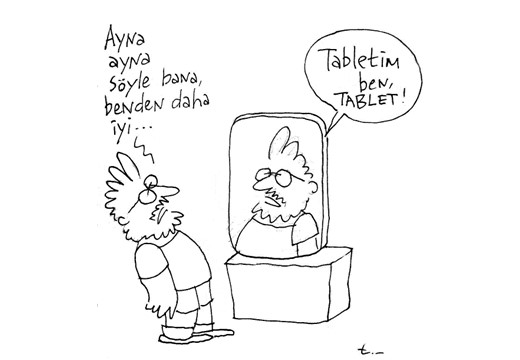 Ayna
ayna
söyle bana,
benden daha
iyi...
Tabletim
ben,
TABLET!
t._